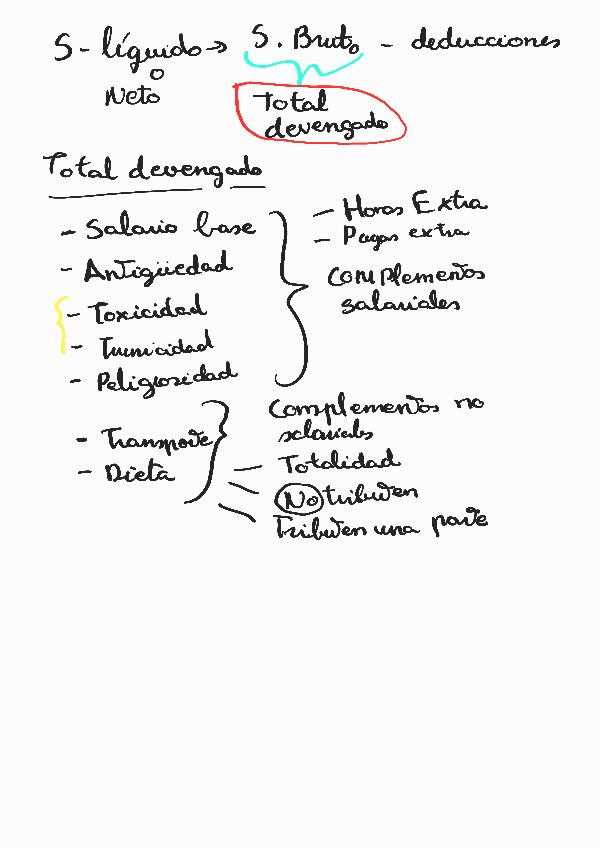 S - líquido → S. Bruto - deducciones
o
Neto
Total
devengado
Total devengado
- Salario base
- Antigüedad
- Toxicidad
- Turnicidad
- Peligrosidad
- Horas Extra
- Pagas extra
complementos
salariales
- Transporte
- Dieta
Complementos no
salariales
- Totalidad
No tributen
Tributen una parte